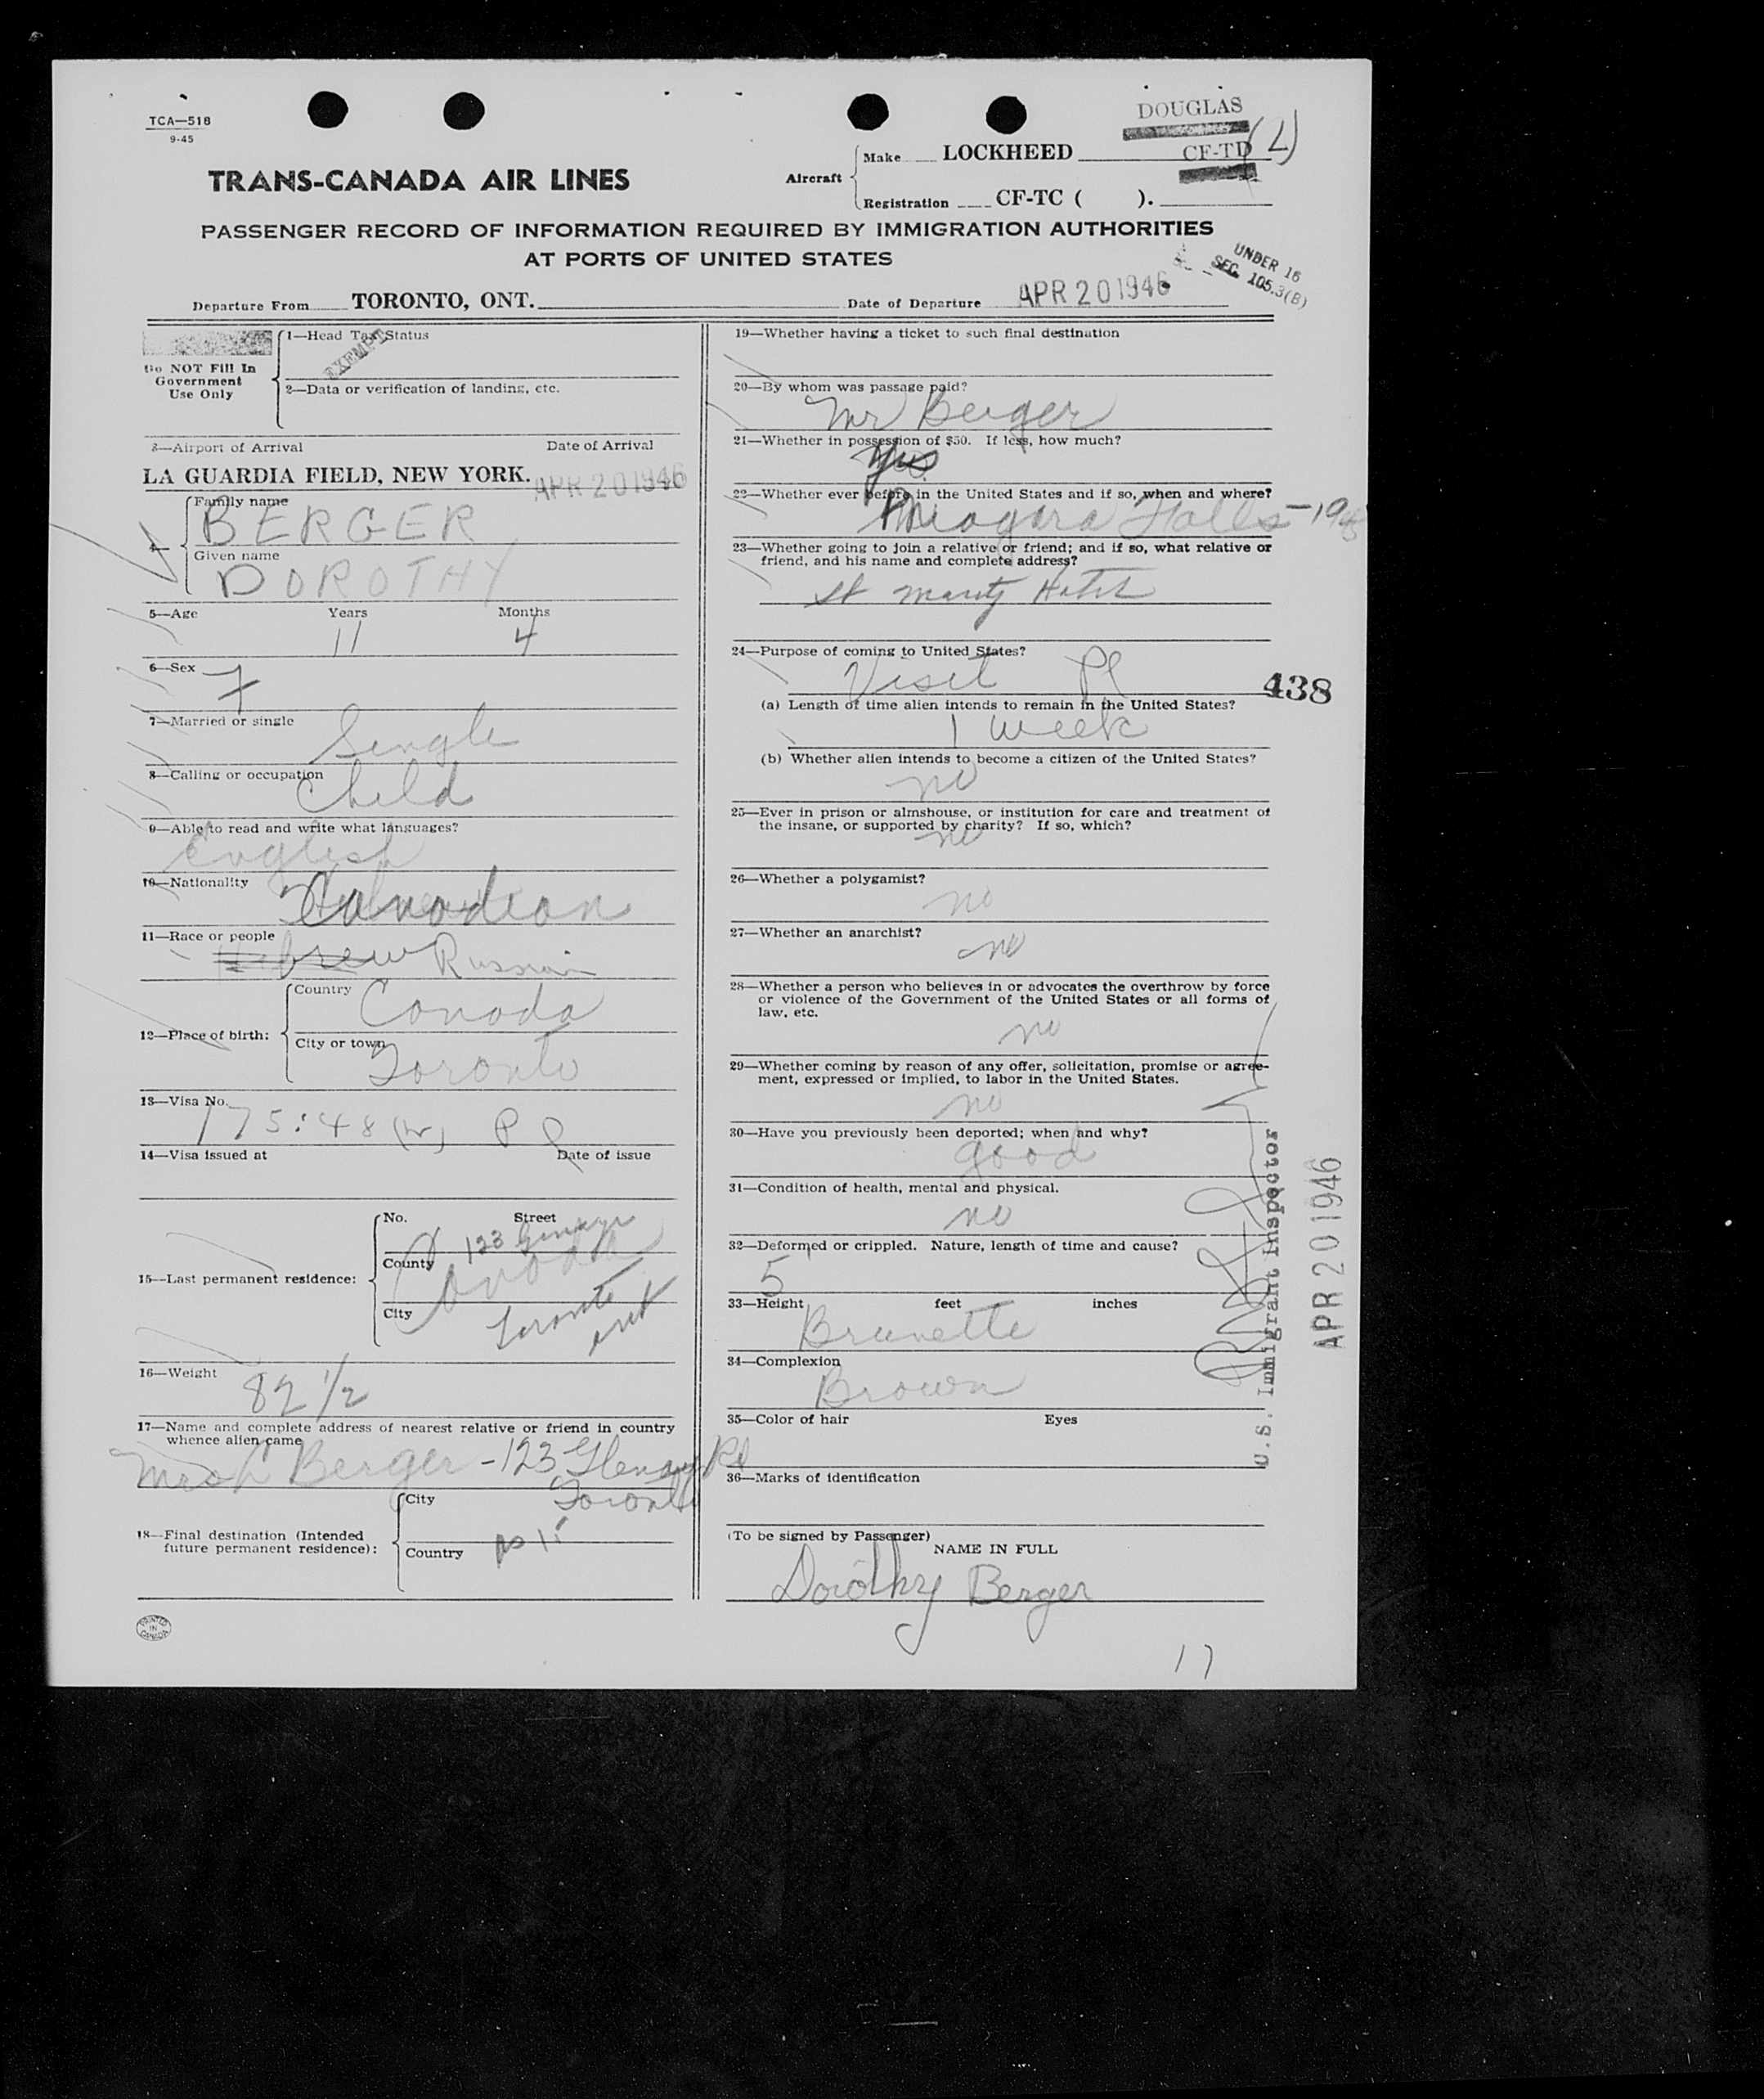 TCA—518
9-45
DOUGLAS
TRANS-CANADA AIR LINES
Aircraft
Make LOCKHEED CF-TD (L)
Registration CF-TC ( ).
PASSENGER RECORD OF INFORMATION REQUIRED BY IMMIGRATION AUTHORITIES
AT PORTS OF UNITED STATES
UNDER 16
SEC. 105.3(B)
Departure From TORONTO, ONT. Date of Departure APR 20 1946
Do NOT Fill In
Government
Use Only
1—Head Tax Status
EXEMPT
2—Data or verification of landing, etc.
3—Airport of Arrival Date of Arrival
LA GUARDIA FIELD, NEW YORK. APR 20 1946
Family name
BERGER
Given name
DOROTHY
5—Age Years Months
11 4
6—Sex F
7—Married or single Single
8—Calling or occupation Child
9—Able to read and write what languages?
English
10—Nationality Canadian
11—Race or people
Hebrew Russian
12—Place of birth:
Country Canada
City or town Toronto
13—Visa No.
175:48 (W) P P
14—Visa issued at Date of issue
15—Last permanent residence:
No. Street
123
County Canada
City Toronto
16—Weight
82 1/2
17—Name and complete address of nearest relative or friend in country
whence alien came
Berger - 123 Rd
Toronto
18—Final destination (Intended
future permanent residence):
City
Country as 15
PRINTED
IN
CANADA
19—Whether having a ticket to such final destination
20—By whom was passage paid?
Mr Berger
21—Whether in possession of $50. If less, how much?
Yes
22—Whether ever before in the United States and if so, when and where?
Niagara Falls
23—Whether going to join a relative or friend; and if so, what relative or
friend, and his name and complete address?
St Moritz Hotel
24—Purpose of coming to United States?
Visit Pl
438
(a) Length of time alien intends to remain in the United States?
1 week
(b) Whether alien intends to become a citizen of the United States?
no
25—Ever in prison or almshouse, or institution for care and treatment of
the insane, or supported by charity? If so, which?
no
26—Whether a polygamist?
no
27—Whether an anarchist?
no
28—Whether a person who believes in or advocates the overthrow by force
or violence of the Government of the United States or all forms of
law, etc.
no
29—Whether coming by reason of any offer, solicitation, promise or agree-
ment, expressed or implied, to labor in the United States.
no
30—Have you previously been deported; when and why?
good
31—Condition of health, mental and physical.
no
32—Deformed or crippled. Nature, length of time and cause?
5
33—Height feet inches
Brunette
34—Complexion
Brown
35—Color of hair Eyes
36—Marks of identification
(To be signed by Passenger)
NAME IN FULL
Dorothy Berger
17
U.S. Immigrant Inspector
APR 20 1946